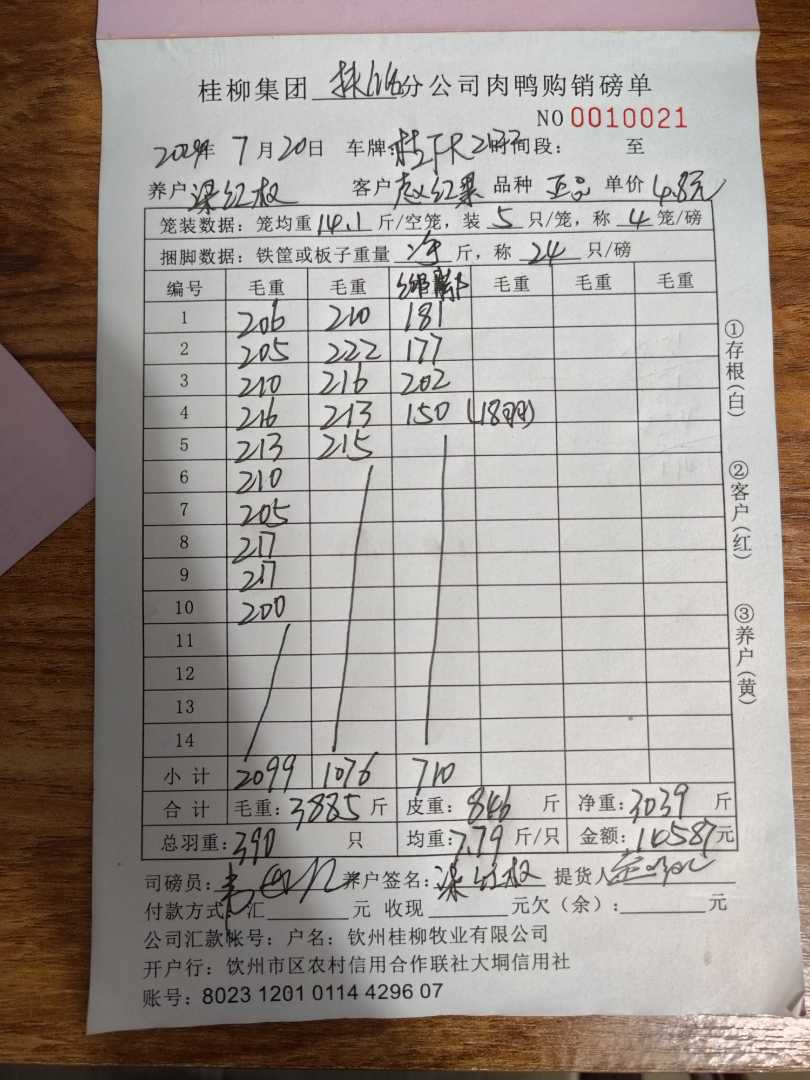 桂柳集团 分公司肉鸭购销磅单
NO 0010021
年 7月20日 车牌: 时间段: 至
养户 梁红权 客户 赵红果 品种 单价 4.8元
笼装数据：笼均重 14.1 斤/空笼，装 5 只/笼，称 4 笼/磅
捆脚数据：铁筐或板子重量 净 斤，称 24 只/磅
编号 毛重 毛重 毛重 毛重 毛重
1 206 210 181
2 205 222 177
3 210 216 202
4 216 213 150 (18羽)
5 213 215
6 210
7 205
8 217
9 217
10 200
11
12
13
14
小计 2099 1076 710
合计 毛重: 3885 斤 皮重: 846 斤 净重: 3039 斤
总羽重: 390 只 均重: 7.79 斤/只 金额: 14587元
司磅员: 养户签名: 梁红权 提货人
付款方式: 汇 元 收现 元欠（余）: 元
公司汇款帐号：户名：钦州桂柳牧业有限公司
开户行：饮州市区农村信用合作联社大垌信用社
账号：8023 1201 0114 4296 07
①存根(白)
②客户(红)
③养户(黄)